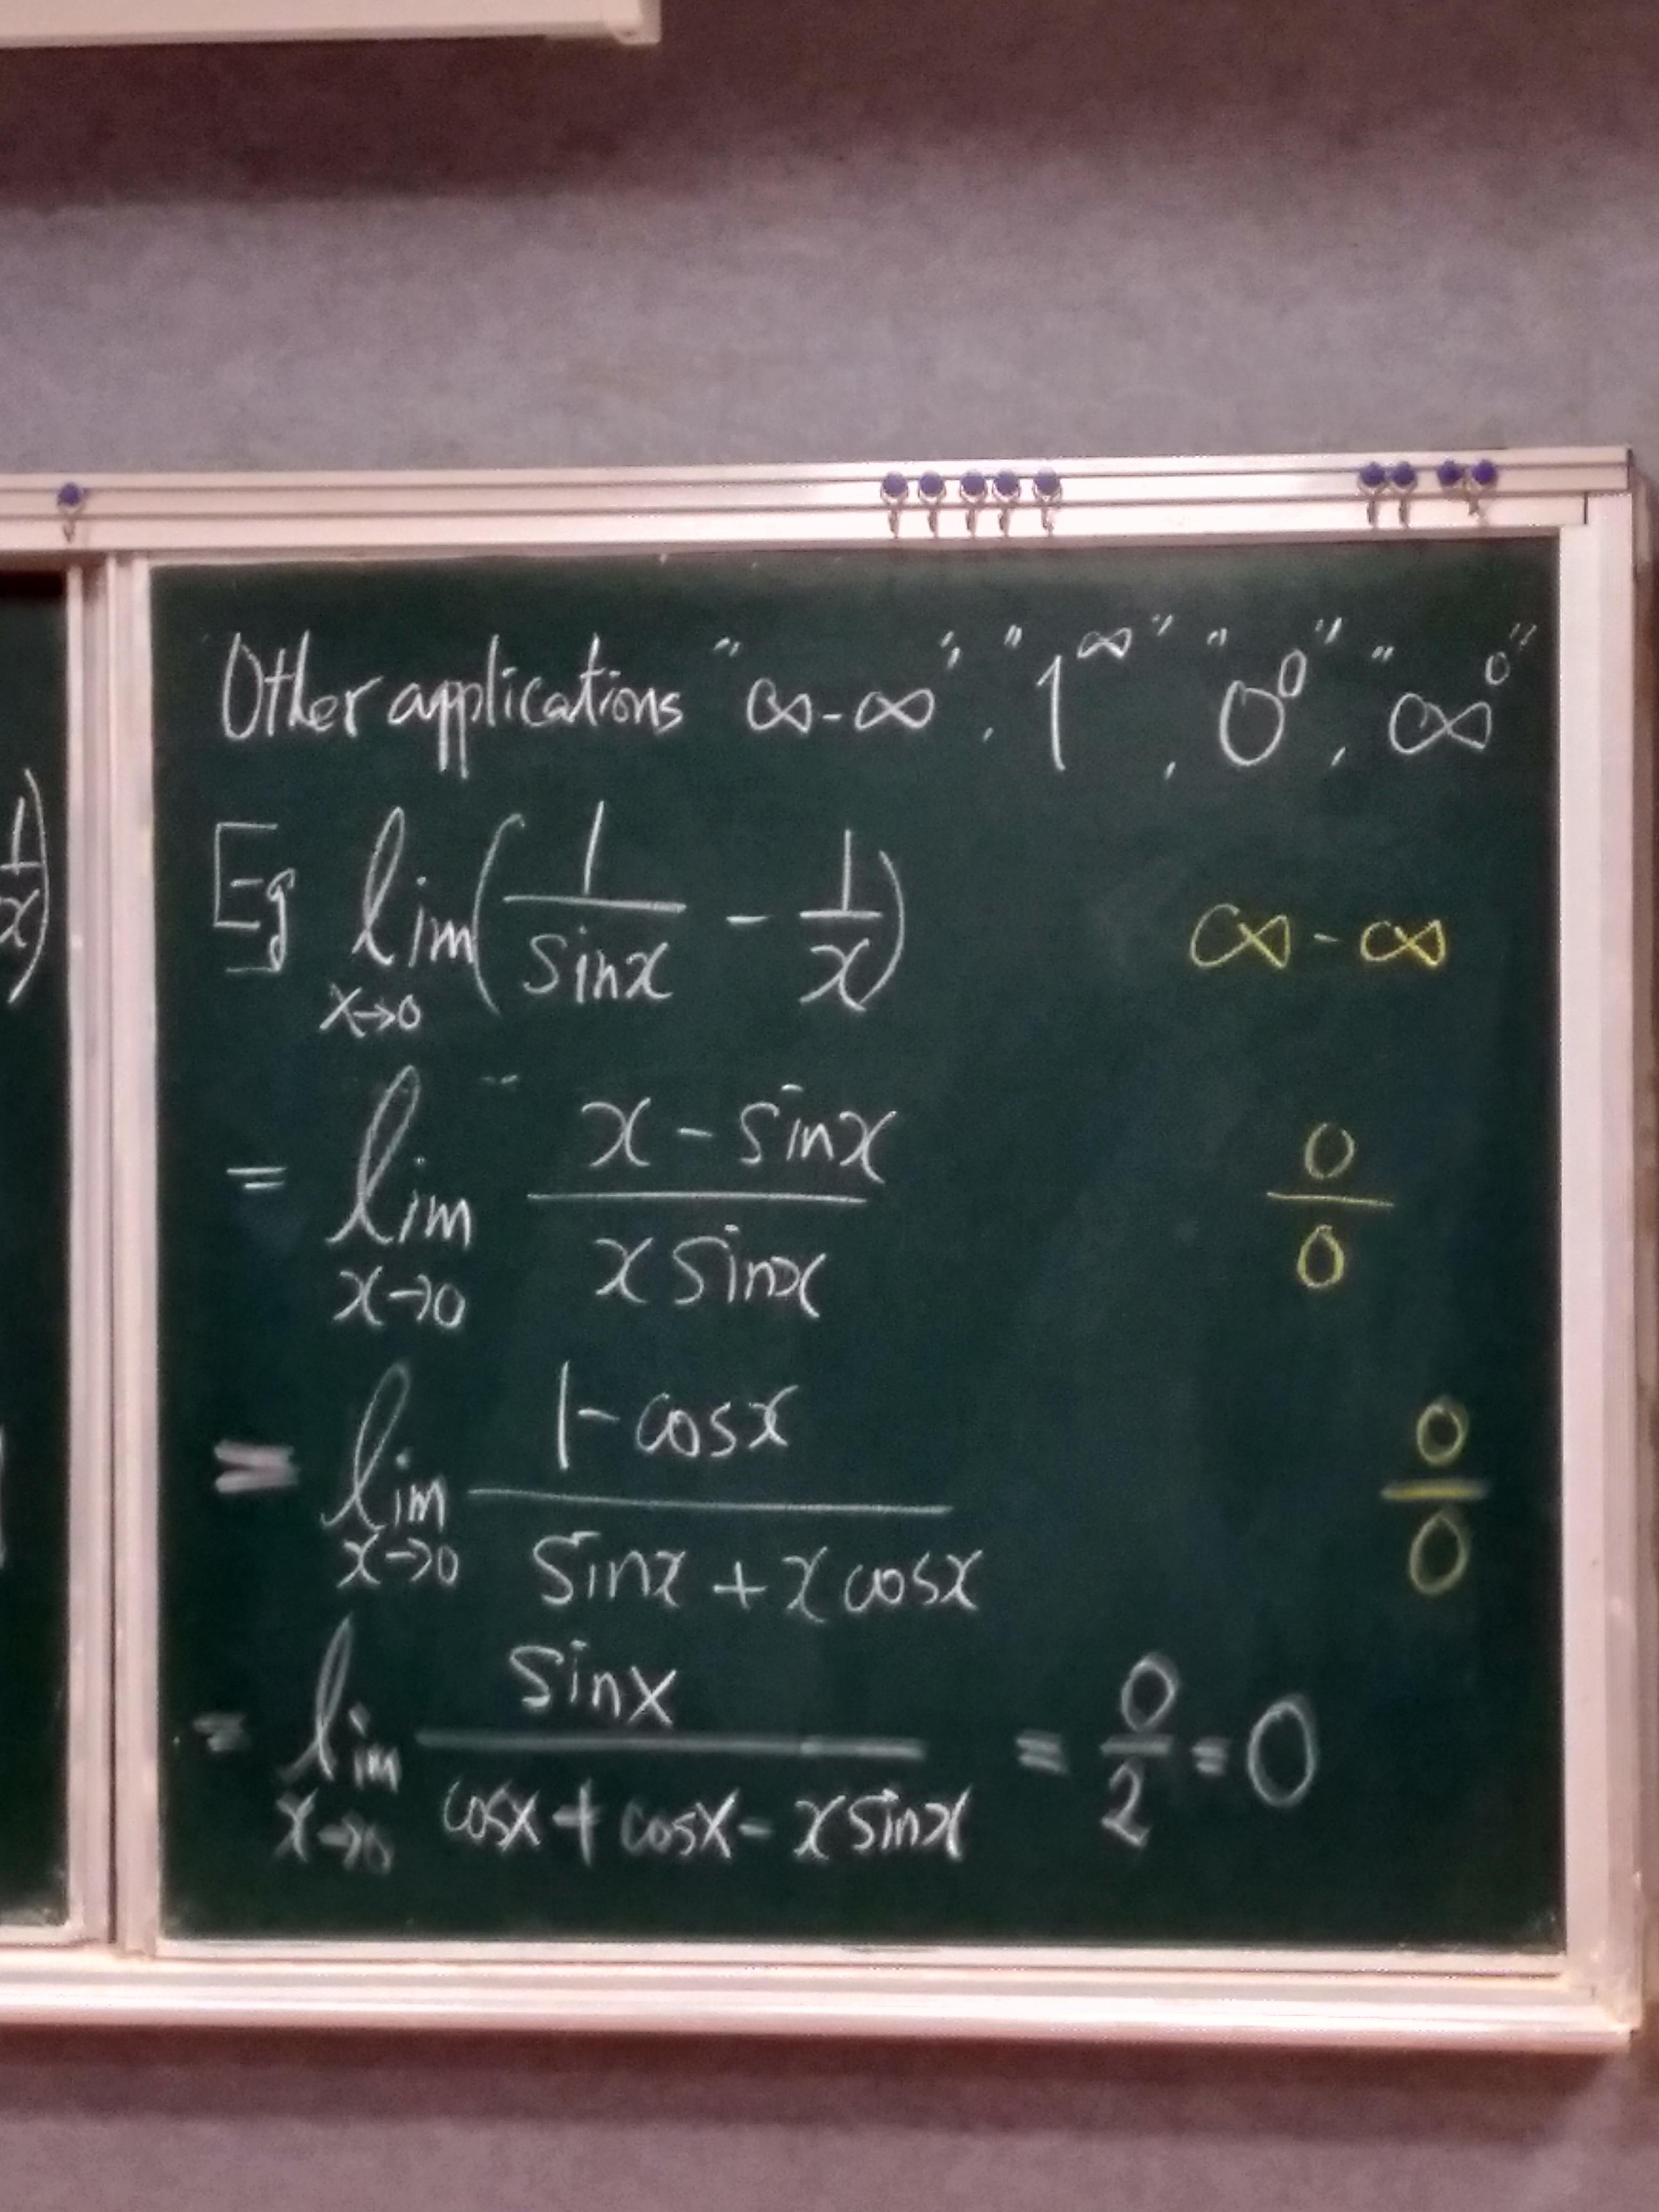 Other applications "∞-∞", "1^∞", "0^0", "∞^0"
Eg lim_{x→0} (1/sinx - 1/x) ∞-∞
= lim_{x→0} (x - sinx)/(x sinx) 0/0
= lim_{x→0} (1-cosx)/(sinx + x cosx) 0/0
= lim_{x→0} sinx/(cosx + cosx - x sinx) = 0/2 = 0
1/x)